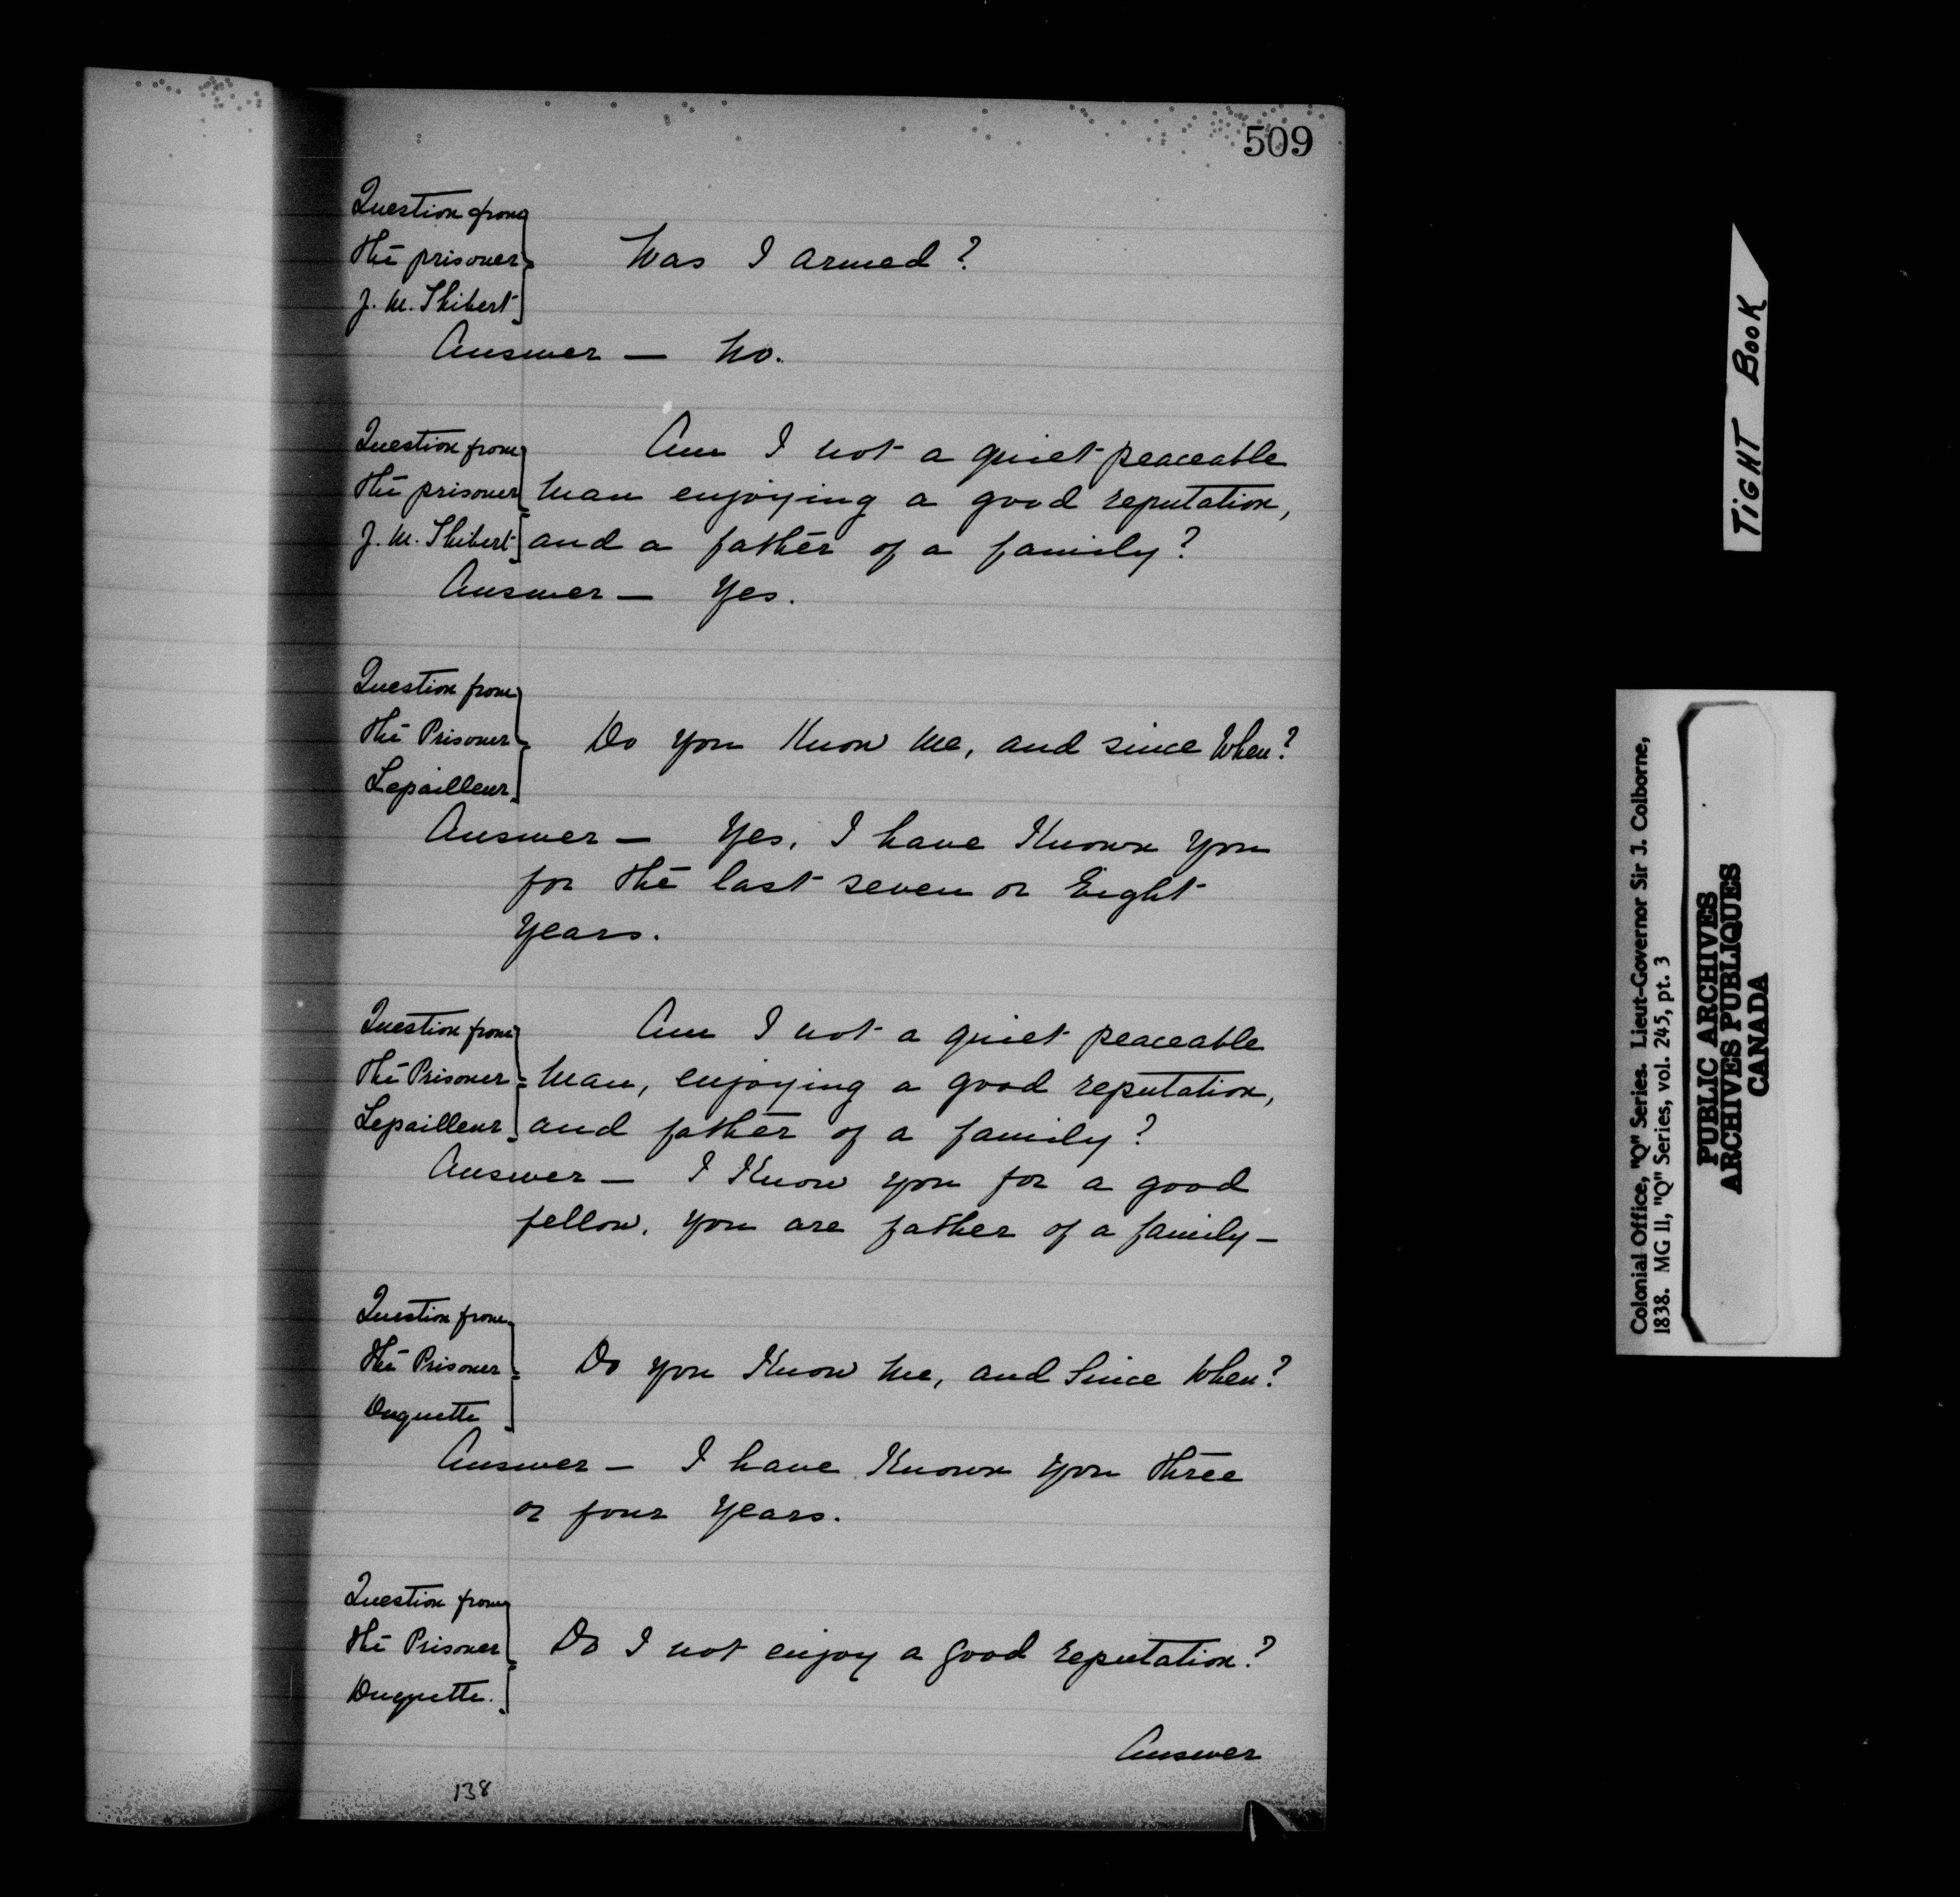 509
Question from
the prisoner
J. M. Thibert
Was I armed?
Answer — No.
Question from
the prisoner
J. M. Thibert
Am I not a quiet peaceable
man enjoying a good reputation,
and a father of a family?
Answer — Yes.
Question from
the Prisoner
Lepailleur
Do you Know me, and since When?
Answer — Yes, I have Known you
for the last seven or Eight
Years.
Question from
the Prisoner
Lepailleur
Am I not a quiet peaceable
man, enjoying a good reputation,
and father of a family?
Answer — I Know you for a good
fellow. you are father of a family —
Question from
the Prisoner
Duquette
Do you Know me, and Since When?
Answer — I have Known you three
or four Years.
Question from
the Prisoner
Duquette.
Do I not enjoy a good reputation?
Answer
138
TiGHT BOOK
Colonial Office, "Q" Series. Lieut-Governor Sir J. Colborne,
1838. MG 11, "Q" Series, vol. 245, pt. 3
PUBLIC ARCHIVES
ARCHIVES PUBLIQUES
CANADA